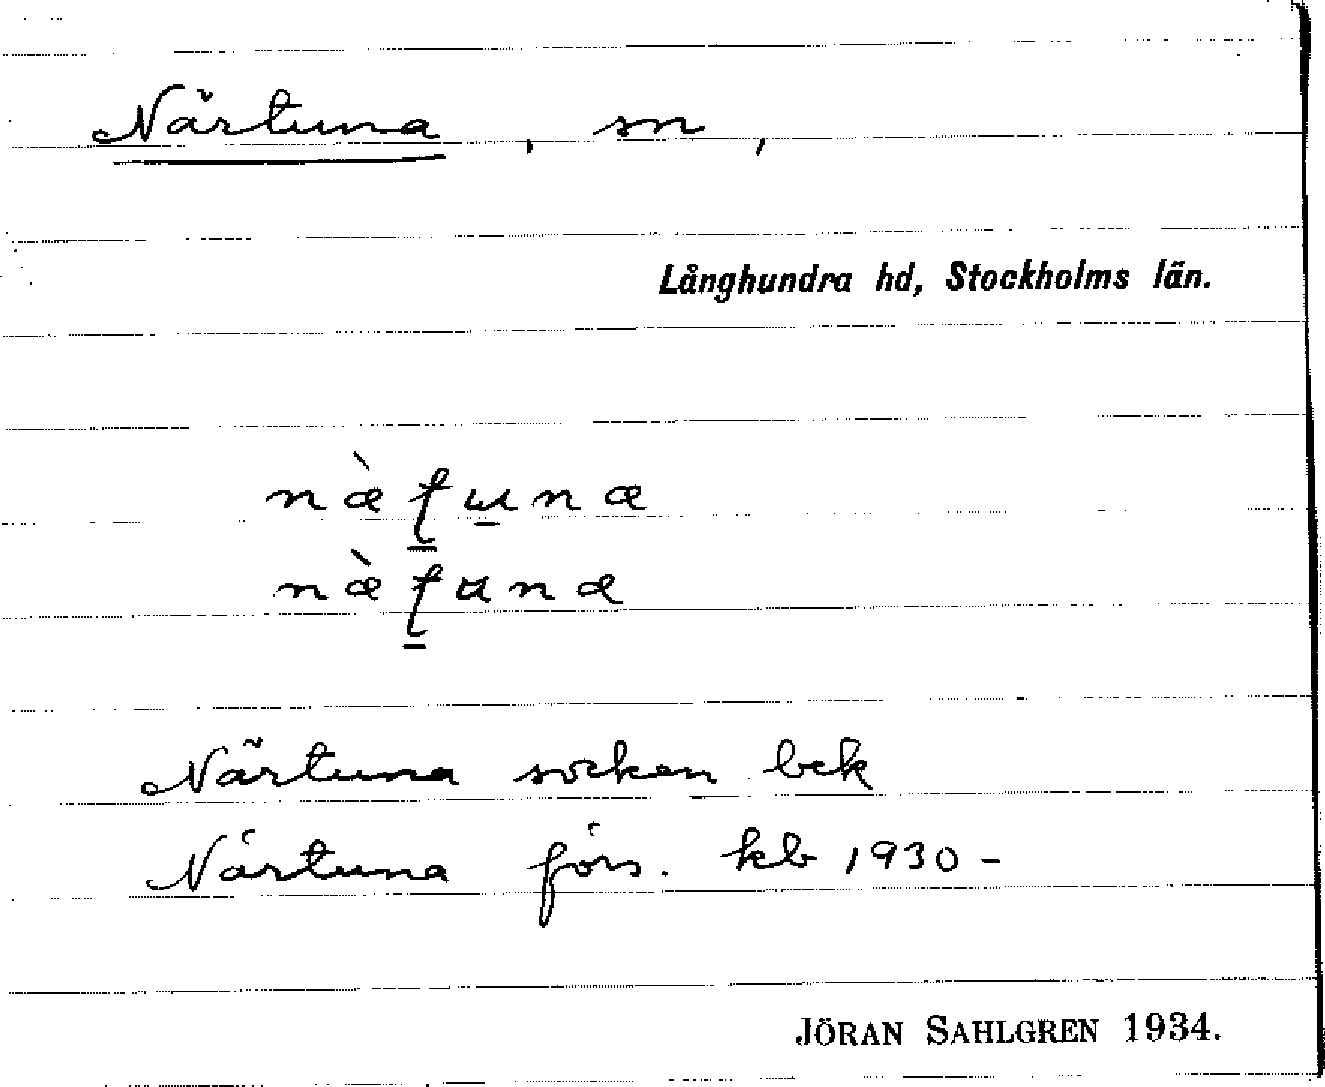 Närtuna, sn,
Långhundra hd, Stockholms län.
næ̀ʈɯ̠næ
næ̀ʈ̠ɑnæ
Närtuna socken bek
Närtuna förs. kb 1930-
JÖRAN SAHLGREN 1934.